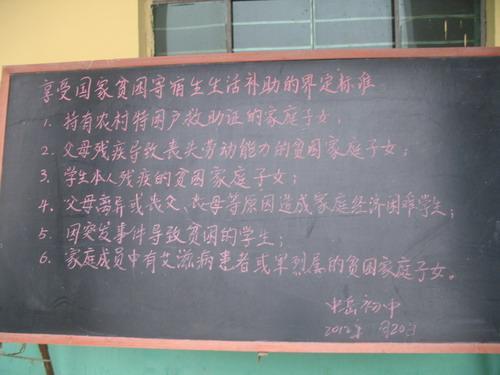 享受国家贫困寄宿生生活补助的界定标准
1. 持有农村特困户救助证的家庭子女；
2. 父母残疾导致丧失劳动能力的贫困家庭子女；
3. 学生本人残疾的贫困家庭子女；
4. 父母离异或丧父、丧母等原因造成家庭经济困难学生；
5. 因突发事件导致贫困的学生；
6. 家庭成员中有艾滋病患者或军烈属的贫困家庭子女。
中岳初中
2012年 月20日